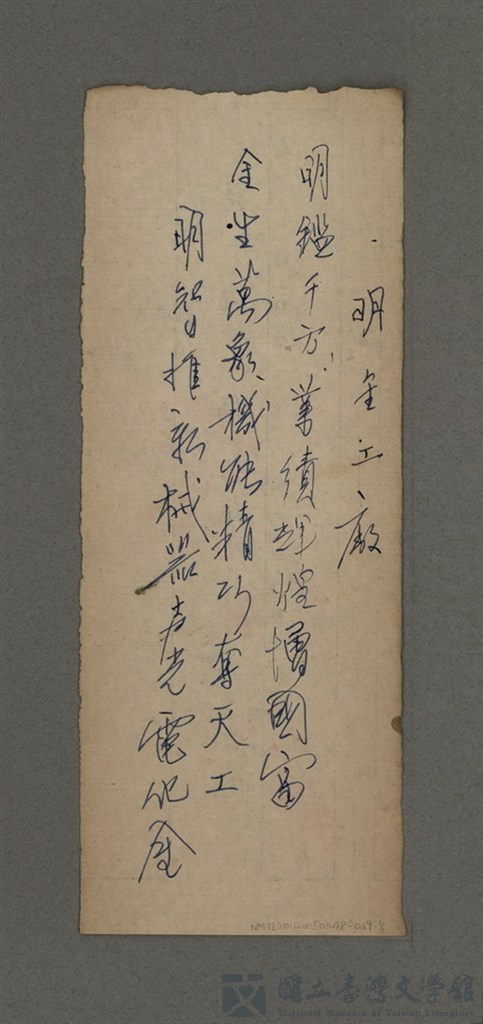 明金工廠
明鑑千方,業績輝煌增國富
金生萬象、機能精巧奪天工
明智推新械器声光電化金
NMTL20160050048-019-8
國立臺灣文學館
National Museum of Taiwan Literature